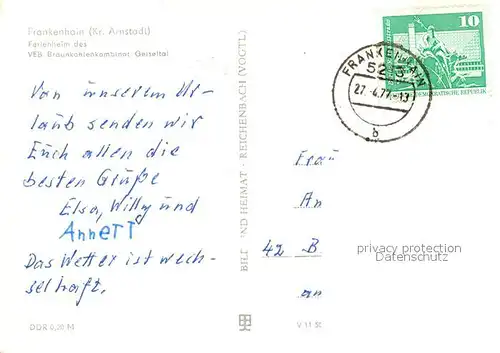 Frankenhain (Kr. Arnstadt)
Ferienheim des
VEB Braunkohlenkombinat Geiseltal
Von unserem Ur-
laub senden wir
Euch allen die
besten Grüße
Elsa, Willy und
Annett
Das Wetter ist wech-
selhaft.
DDR 0,20 M
BILD UND HEIMAT · REICHENBACH (VOGTL)
V 11 50
FRANKENHAIN
5213
27.-4.77.-13
b
10
DEMOKRATISCHE REPUBLIK
Frau
An
42 B
an
privacy protection
Datenschutz